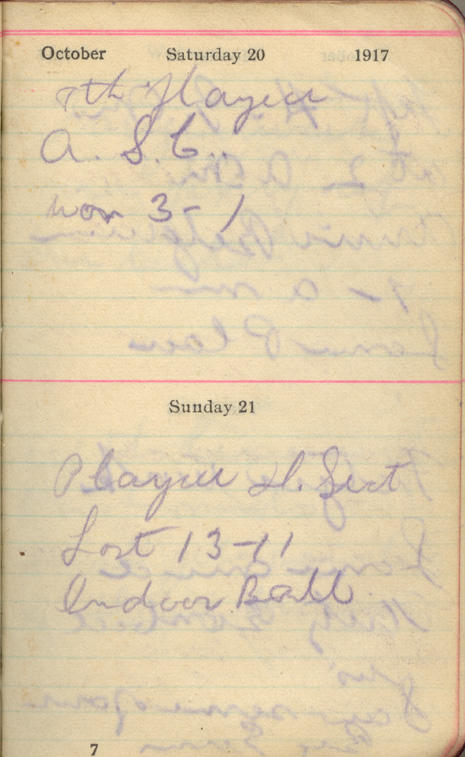 October Saturday 20 1917
7th Played
A. S. C.
won 3-1
Sunday 21
Played H. Sect
Lost 13-11
Indoor Ball
7